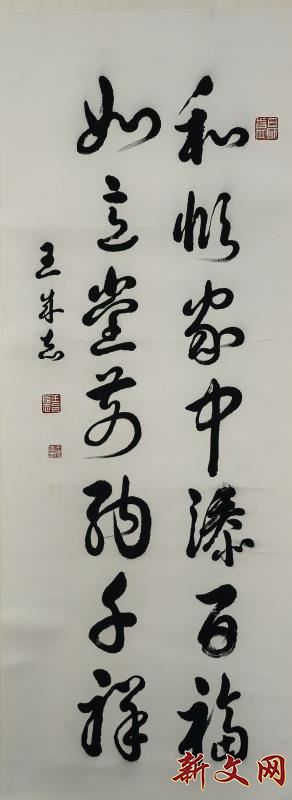 和顺家中添百福
如意堂前纳千祥
王成志
新文网